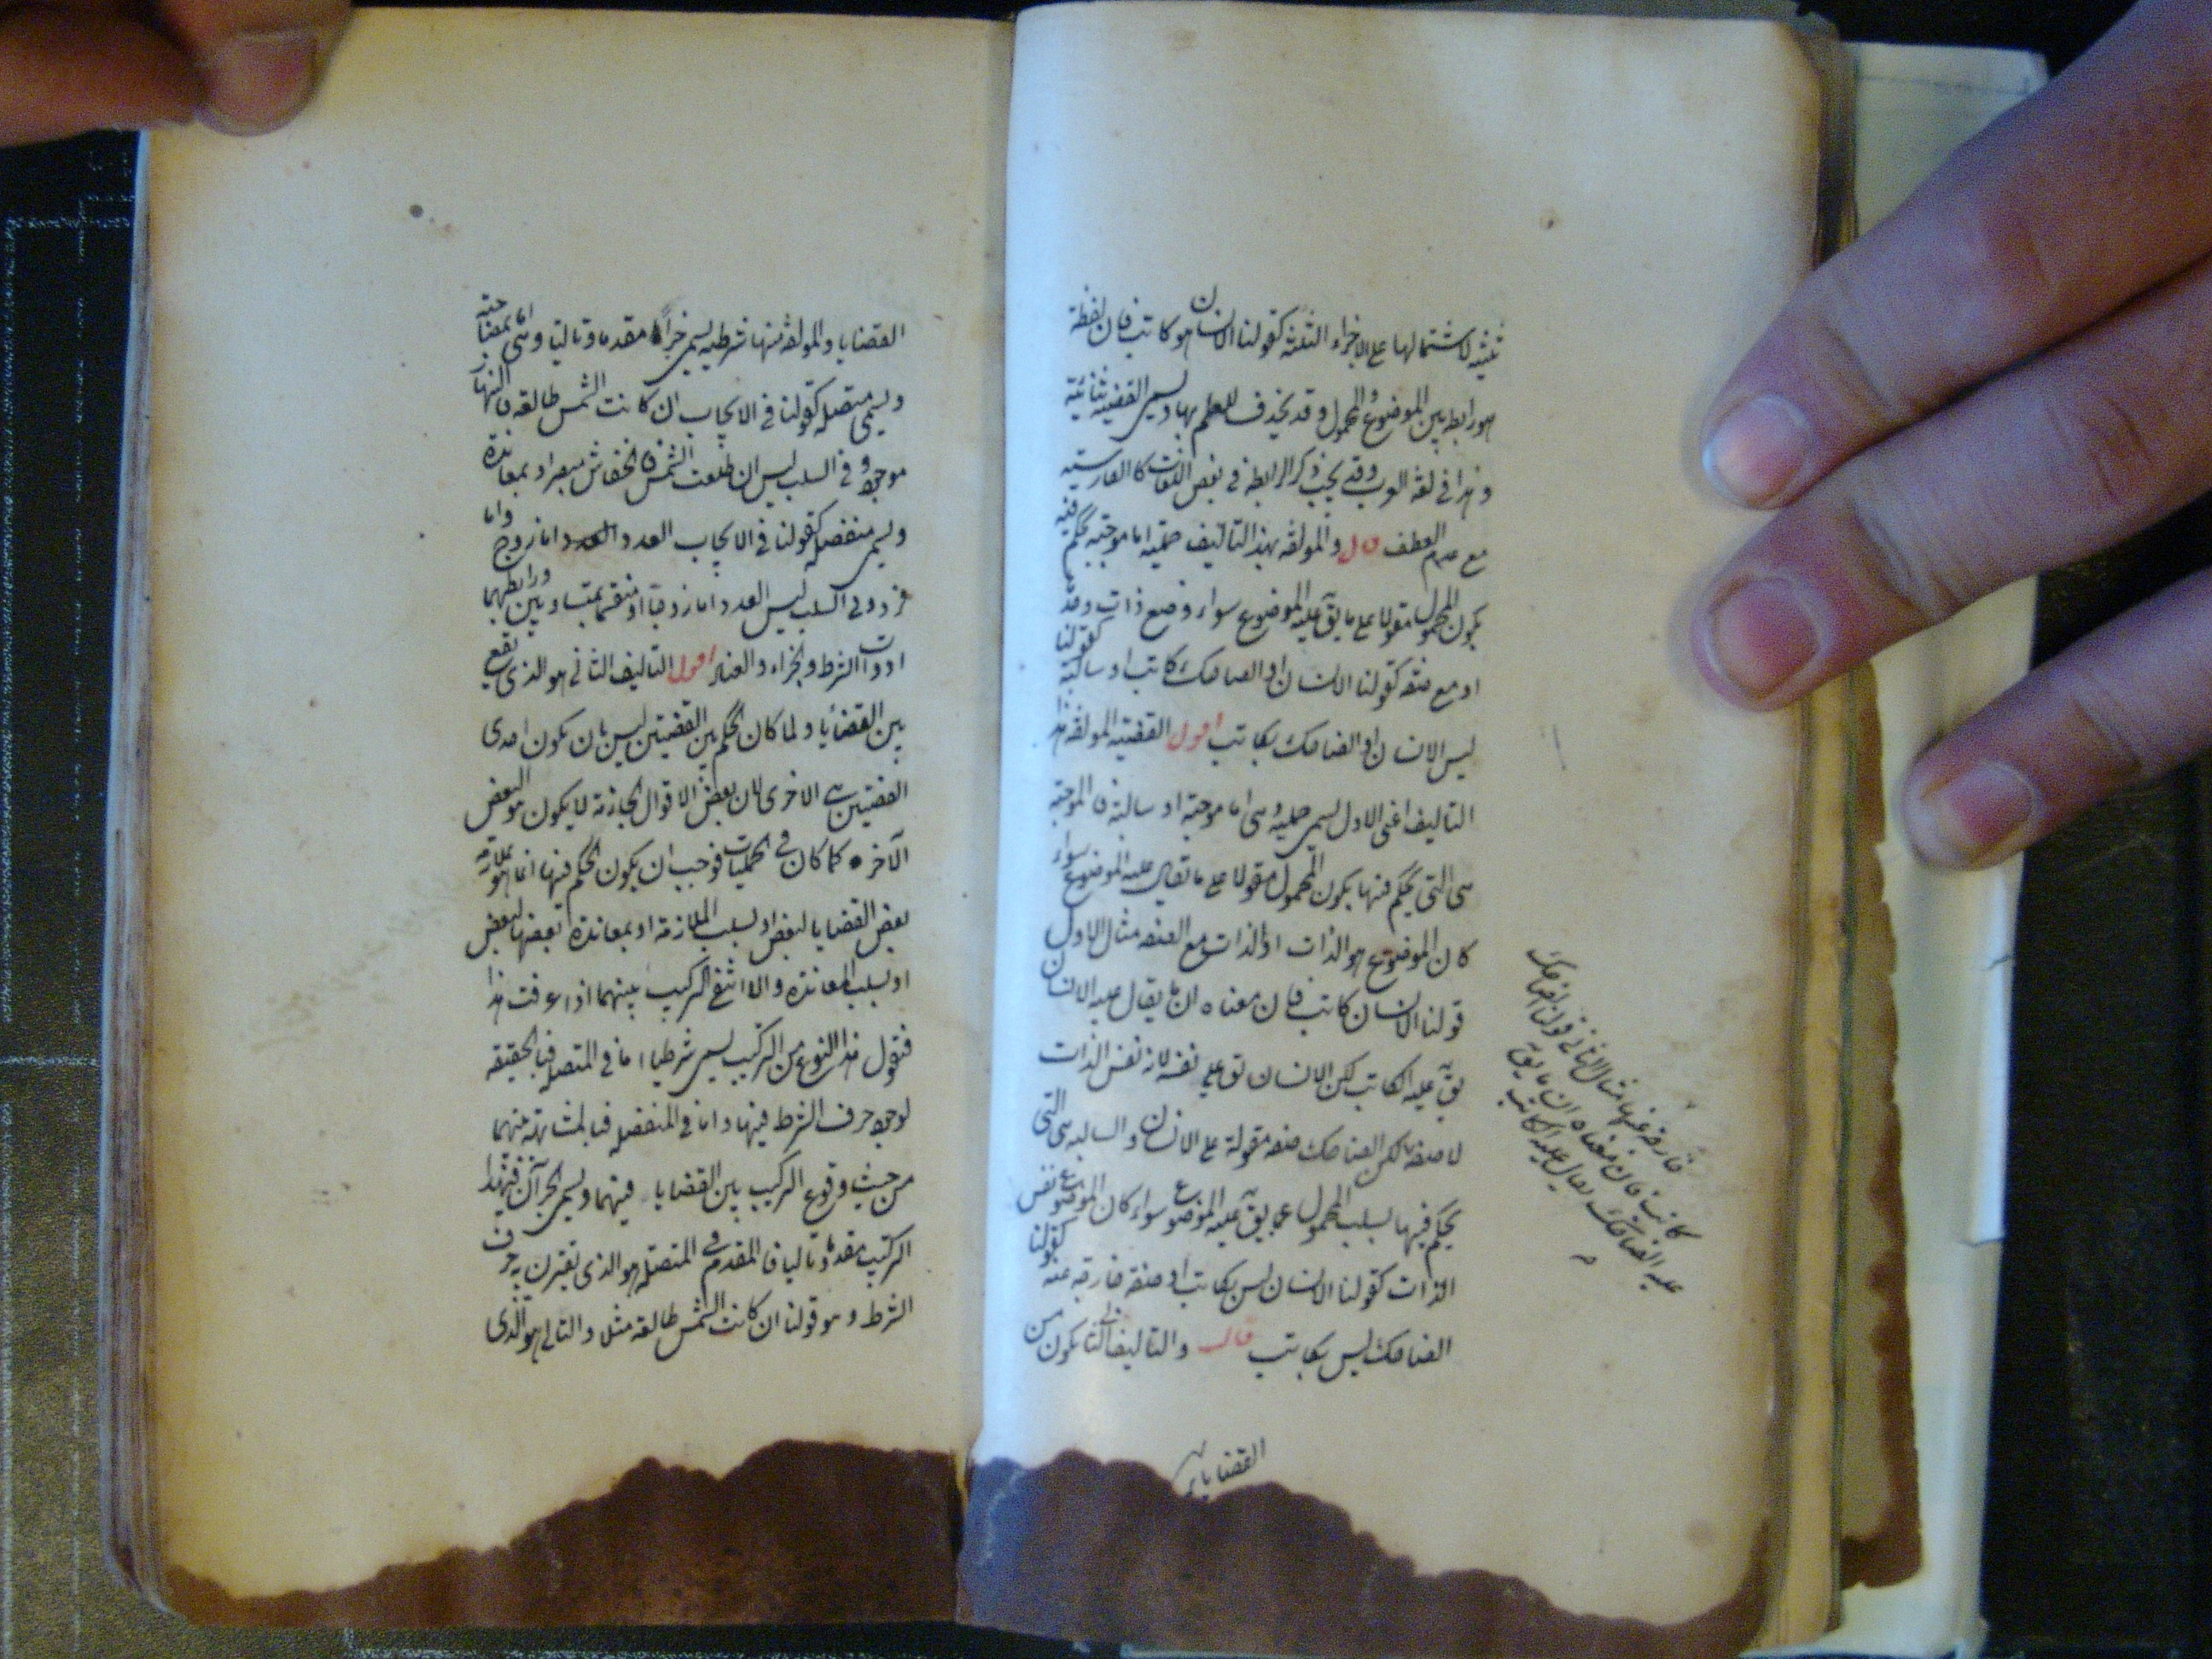 ثلثية لاشتمالها على الاجزاء الثلثة كقولنا الانسان هو كاتب فان لفظة
هو رابطة بين الموضوع والمحمول وقد يحذف للعلم بها ويسمى القضية ثنائية
وهذا في لغة العرب وقد يجب ذكر الرابطة في بعض اللغات كالفارسية
مع عدم العطف قال والمولفة بهذا التاليف حملية اما موجبة يحكم فيه
بكون المحمول مقولا على ما يق عليه الموضوع سواء وضع ذات وحده
او مع صفة كقولنا الانسان او الضاحك كاتب او سالبة كقولنا
ليس الانسان او الضاحك بكاتب اقول القضية المولفة هذا
التاليف اعنى الاول يسمى حملية وهى اما موجبة او سالبة فالموجبة
هى التى يحكم فيها بكون المحمول مقولا على ما يقال عليه الموضوع سواء
كان الموضوع هو الذات او الذات مع الصفة مثال الاول
قولنا الانسان كاتب فان معناه ان ما يقال عليه الانسان
يق عليه الكاتب لكن الانسان يق على نفسه لانه نفس الذات
لا صفة لكن الضاحك صفة مقولة على الانسان والسالبة هى التى
يحكم فيها بسلب المحمول عما يق عليه الموضوع سواء كان الموضوع نفس
الذات كقولنا الانسان ليس بكاتب او صفة خارجة عنه كقولنا
الضاحك ليس بكاتب قال والتاليف الثانى يكون من
القضايا
خارجة عنها مثال الثانى قولنا الضاحك
كاتب فان معناه ان ما يق
عليه الضاحك يقال عليه الكاتب
القضايا والمولفة منها شرطية يسمى جزآه مقدما وتاليا وهى اما بمصاحبة
ويسمى متصلة كقولنا في الايجاب ان كانت الشمس طالعة فالنهار
موجود وفى السلب ليس ان طلعت الشمس فالخفاش مبصر او بمعاندة
ويسمى منفصلة كقولنا في الايجاب العدد اما زوج واما
فرد وفى السلب ليس العدد اما زوجا او منقسما بمتساويين ورابطهما
ادوات الشرط والجزاء والعناد اقول التاليف الثانى هو الذى يقع
بين القضايا ولما كان الحكم بين القضيتين ليس بان يكون احدى
القضيتين هى الاخرى لان بعض الاقوال الجازمة لا يكون هو البعض
الآخر كما كان في الحمليات فوجب ان يكون الحكم فيها انما هو بملازمة
بعض القضايا لبعض او بسلب الملازمة او بمعاندة بعضها لبعض
او بسلب المعاندة والا انتفى التركيب بينهما اذا عرفت هذا
فنقول هذا النوع من التركيب يسمى شرطيا اما في المتصلة فبالحقيقة
لوجود حرف الشرط فيها واما في المنفصلة فبالمشابهة بينهما
من حيث وقوع التركيب بين القضايا فيهما ويسمى الجزآن في هذا
التركيب مقدما وتاليا فالمقدم في المتصلة هو الذى يقترن به حرف
الشرط وهو قولنا ان كانت الشمس طالعة مثلا والتالى هو الذى